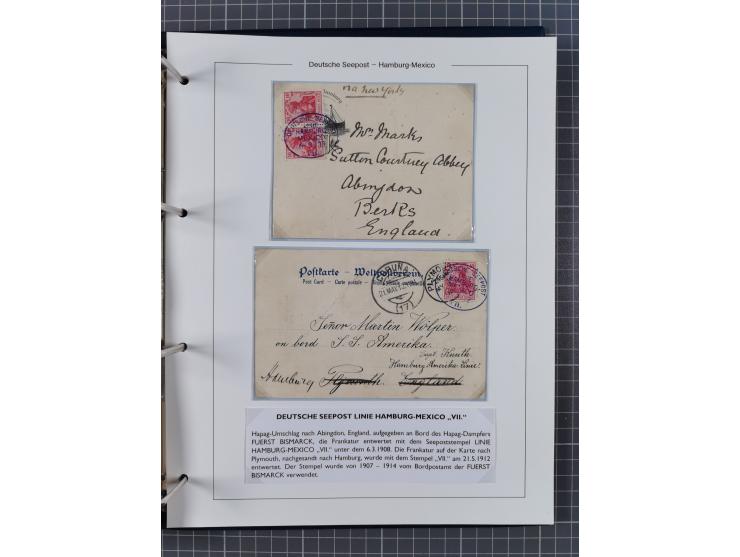 Deutsche Seepost – Hamburg-Mexico
via New York
Mrs Marks
Sutton Courtney Abbey
Abingdon
Berks
England.
Postkarte – Weltpostverein
Post Card – Carte postale –
CORUÑA
21 MAY 12
(17)
Señor Martin Wölper
on bord S. S. Amerika.
Capt. Knuth.
Hamburg Amerika Linie.
Hamburg Plymouth. England
DEUTSCHE SEEPOST LINIE HAMBURG-MEXICO „VII.“
Hapag-Umschlag nach Abingdon, England, aufgegeben an Bord des Hapag-Dampfers
FUERST BISMARCK, die Frankatur entwertet mit dem Seepoststempel LINIE
HAMBURG-MEXICO „VII." unter dem 6.3.1908. Die Frankatur auf der Karte nach
Plymouth, nachgesandt nach Hamburg, wurde mit dem Stempel „VII." am 21.5.1912
entwertet. Der Stempel wurde von 1907 – 1914 vom Bordpostamt der FUERST
BISMARCK verwendet.